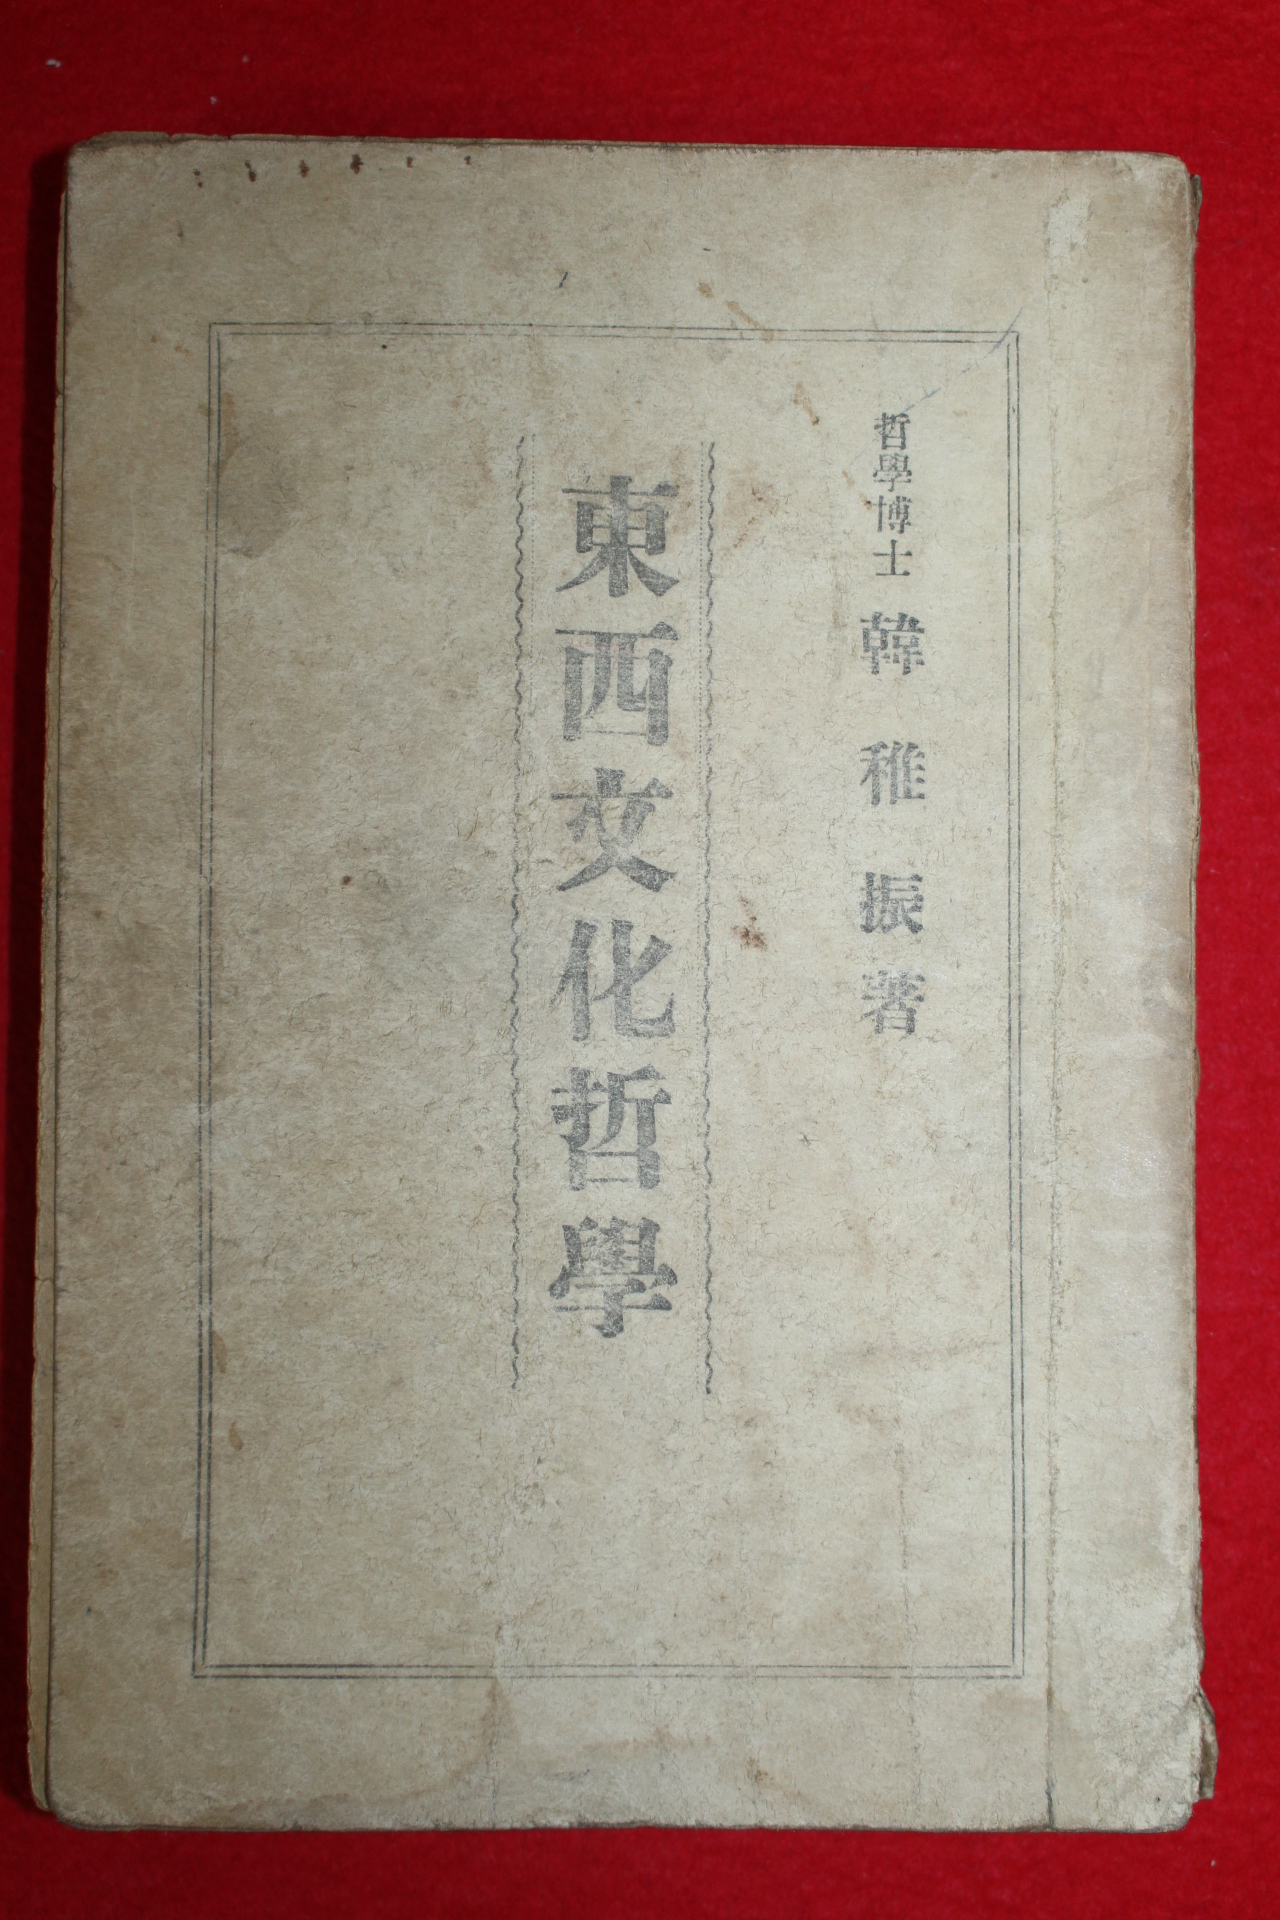 哲學博士 韓稚振著
東西文化哲學